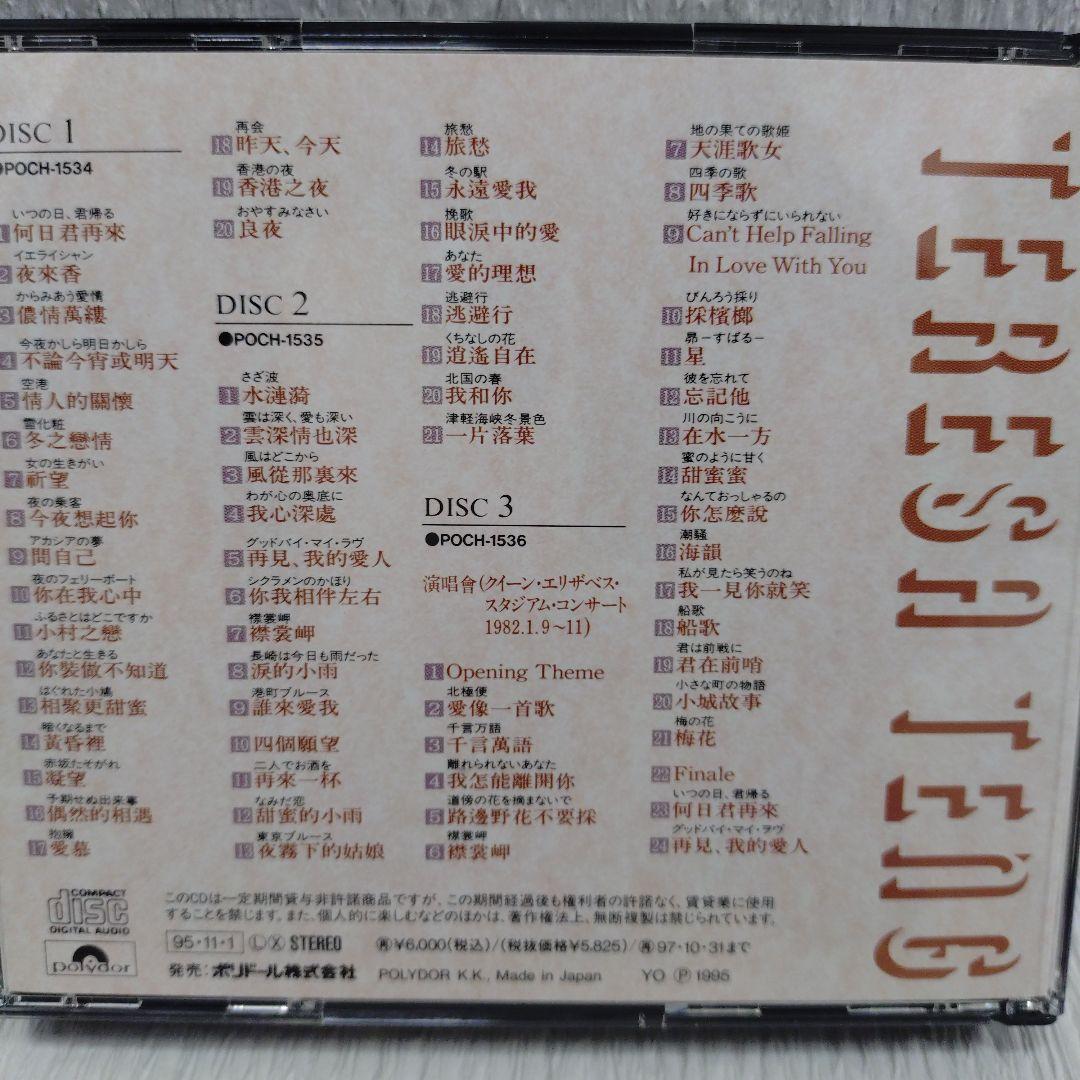 DISC 1
●POCH-1534
いつの日、君帰る
1 何日君再來
イエライシャン
2 夜來香
からみあう愛情
3 儂情萬縷
今夜かしら明日かしら
4 不論今宵或明天
空港
5 情人的關懷
雪化粧
6 冬之戀情
女の生きがい
7 祈望
夜の乗客
8 今夜想起你
アカシアの夢
9 問自己
夜のフェリーボート
10 你在我心中
ふるさとはどこですか
11 小村之戀
あなたと生きる
12 你裝做不知道
はぐれた小鳩
13 相聚更甜蜜
暗くなるまで
14 黃昏裡
赤坂たそがれ
15 凝望
予期せぬ出来事
16 偶然的相遇
抱擁
17 愛慕
再会
18 昨天、今天
香港の夜
19 香港之夜
おやすみなさい
20 良夜
DISC 2
●POCH-1535
さざ波
1 水漣漪
雲は深く、愛も深い
2 雲深情也深
風はどこから
3 風從那裏來
わが心の奥底に
4 我心深處
グッドバイ・マイ・ラヴ
5 再見、我的愛人
シクラメンのかほり
6 你我相伴左右
襟裳岬
7 襟裳岬
長崎は今日も雨だった
8 淚的小雨
港町ブルース
9 誰來愛我
10 四個願望
二人でお酒を
11 再來一杯
なみだ恋
12 甜蜜的小雨
東京ブルース
13 夜霧下的姑娘
旅愁
14 旅愁
冬の駅
15 永遠愛我
挽歌
16 眼淚中的愛
あなた
17 愛的理想
逃避行
18 逃避行
くちなしの花
19 逍遙自在
北国の春
20 我和你
津軽海峡冬景色
21 一片落葉
DISC 3
●POCH-1536
演唱會(クイーン・エリザベス・
スタジアム・コンサート
1982.1.9〜11)
1 Opening Theme
北極便
2 愛像一首歌
千言万語
3 千言萬語
離れられないあなた
4 我怎能離開你
道傍の花を摘まないで
5 路邊野花不要採
襟裳岬
6 襟裳岬
地の果ての歌姫
7 天涯歌女
四季の歌
8 四季歌
好きにならずにいられない
9 Can't Help Falling
In Love With You
びんろう採り
10 採檳榔
昴ーすばるー
11 星
彼を忘れて
12 忘記他
川の向こうに
13 在水一方
蜜のように甘く
14 甜蜜蜜
なんておっしゃるの
15 你怎麼說
潮騒
16 海韻
私が見たら笑うのね
17 我一見你就笑
船歌
18 船歌
君は前戦に
19 君在前哨
小さな町の物語
20 小城故事
梅の花
21 梅花
22 Finale
いつの日、君帰る
23 何日君再來
グッドバイ・マイ・ラヴ
24 再見、我的愛人
teresa teng
COMPACT
disc
DIGITAL AUDIO
polydor
このCDは一定期間貸与非許諾商品ですが、この期間経過後も権利者の許諾なく、賃貸業に使用
することを禁じます。また、個人的に楽しむなどのほかは、著作権法上、無断複製は禁じられています。
95・11・1 Ⓛ Ⓧ STEREO ㊒¥6,000(税込)/(税抜価格¥5,825)/㊒97・10・31まで
発売:ポリドール株式会社 POLYDOR K.K., Made in Japan YO Ⓟ 1995